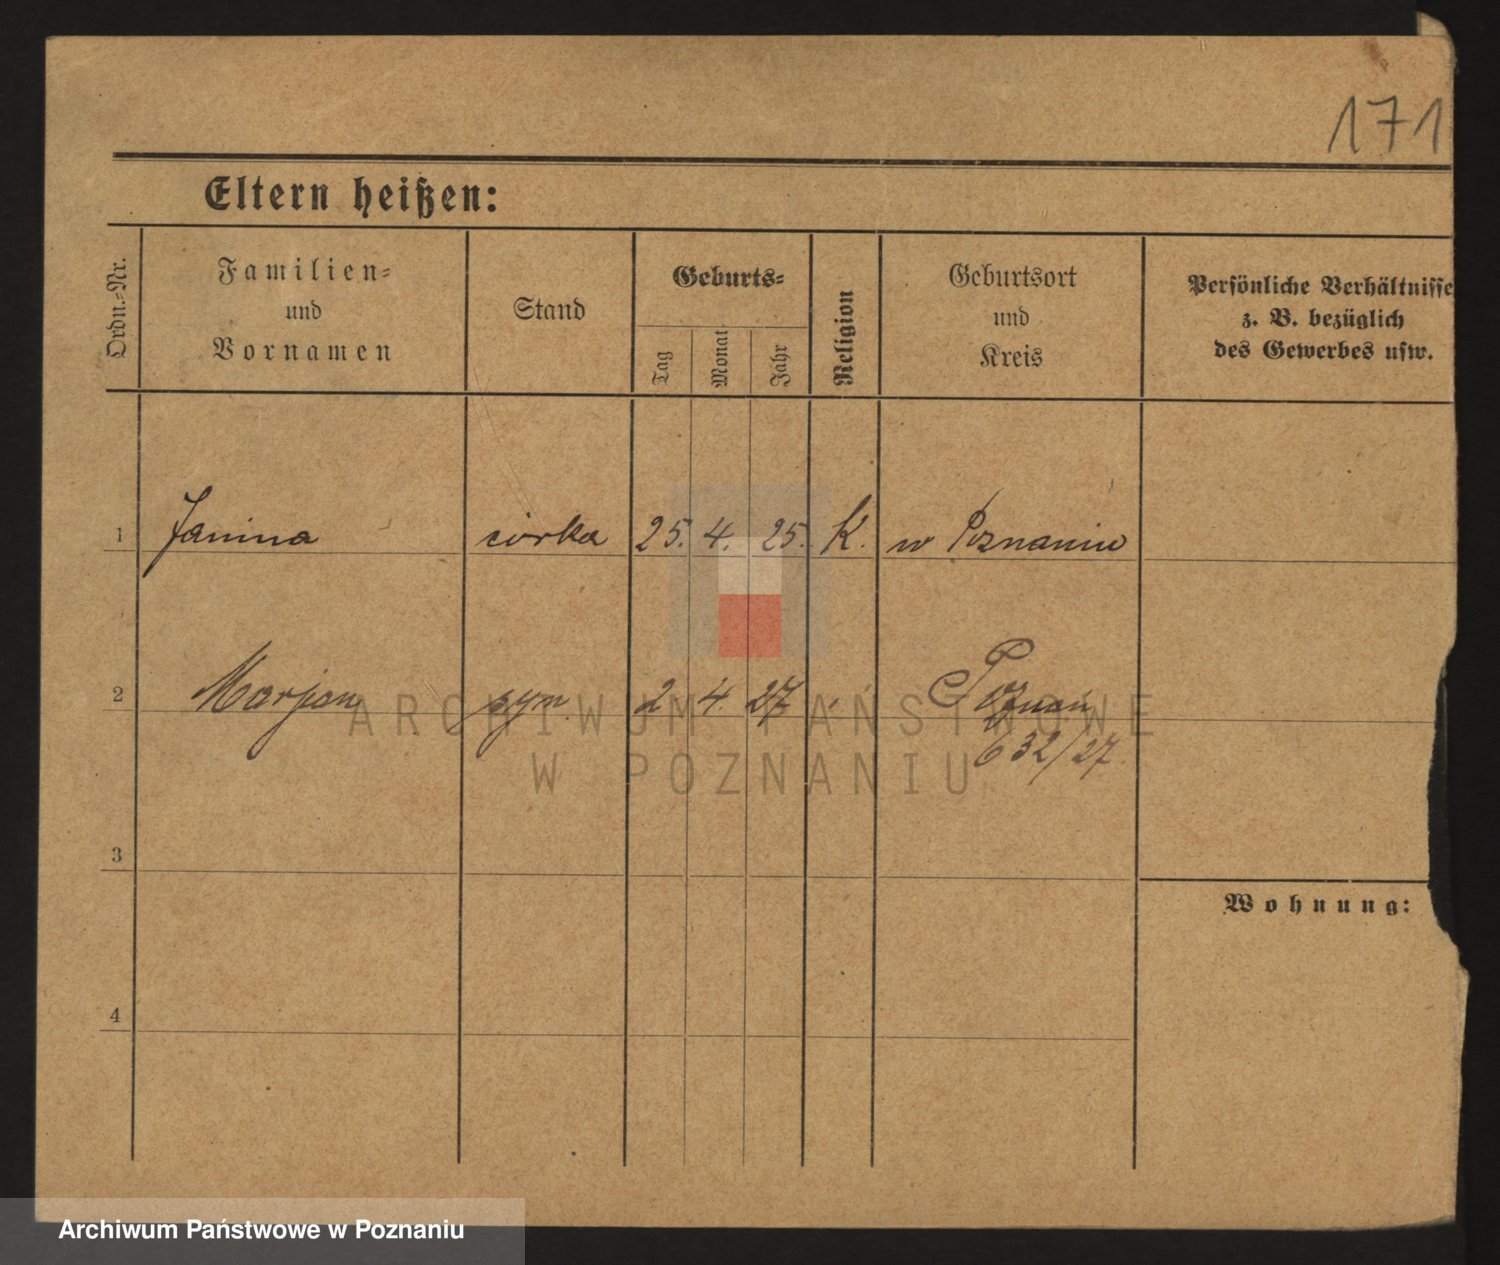 171
Eltern heißen:
Ordn.-Nr.
Familien-
und
Vornamen
Stand
Geburts-
Tag
Monat
Jahr
Religion
Geburtsort
und
Kreis
Persönliche Verhältnisse
z. B. bezüglich
des Gewerbes usw.
1 Janina córka 25. 4. 25. K. w Poznaniu
2 Marjan syn 2 4. 27 Poznań
632/27.
3
Wohnung:
4
ARCHIWUM PAŃSTWOWE
W POZNANIU
Archiwum Państwowe w Poznaniu